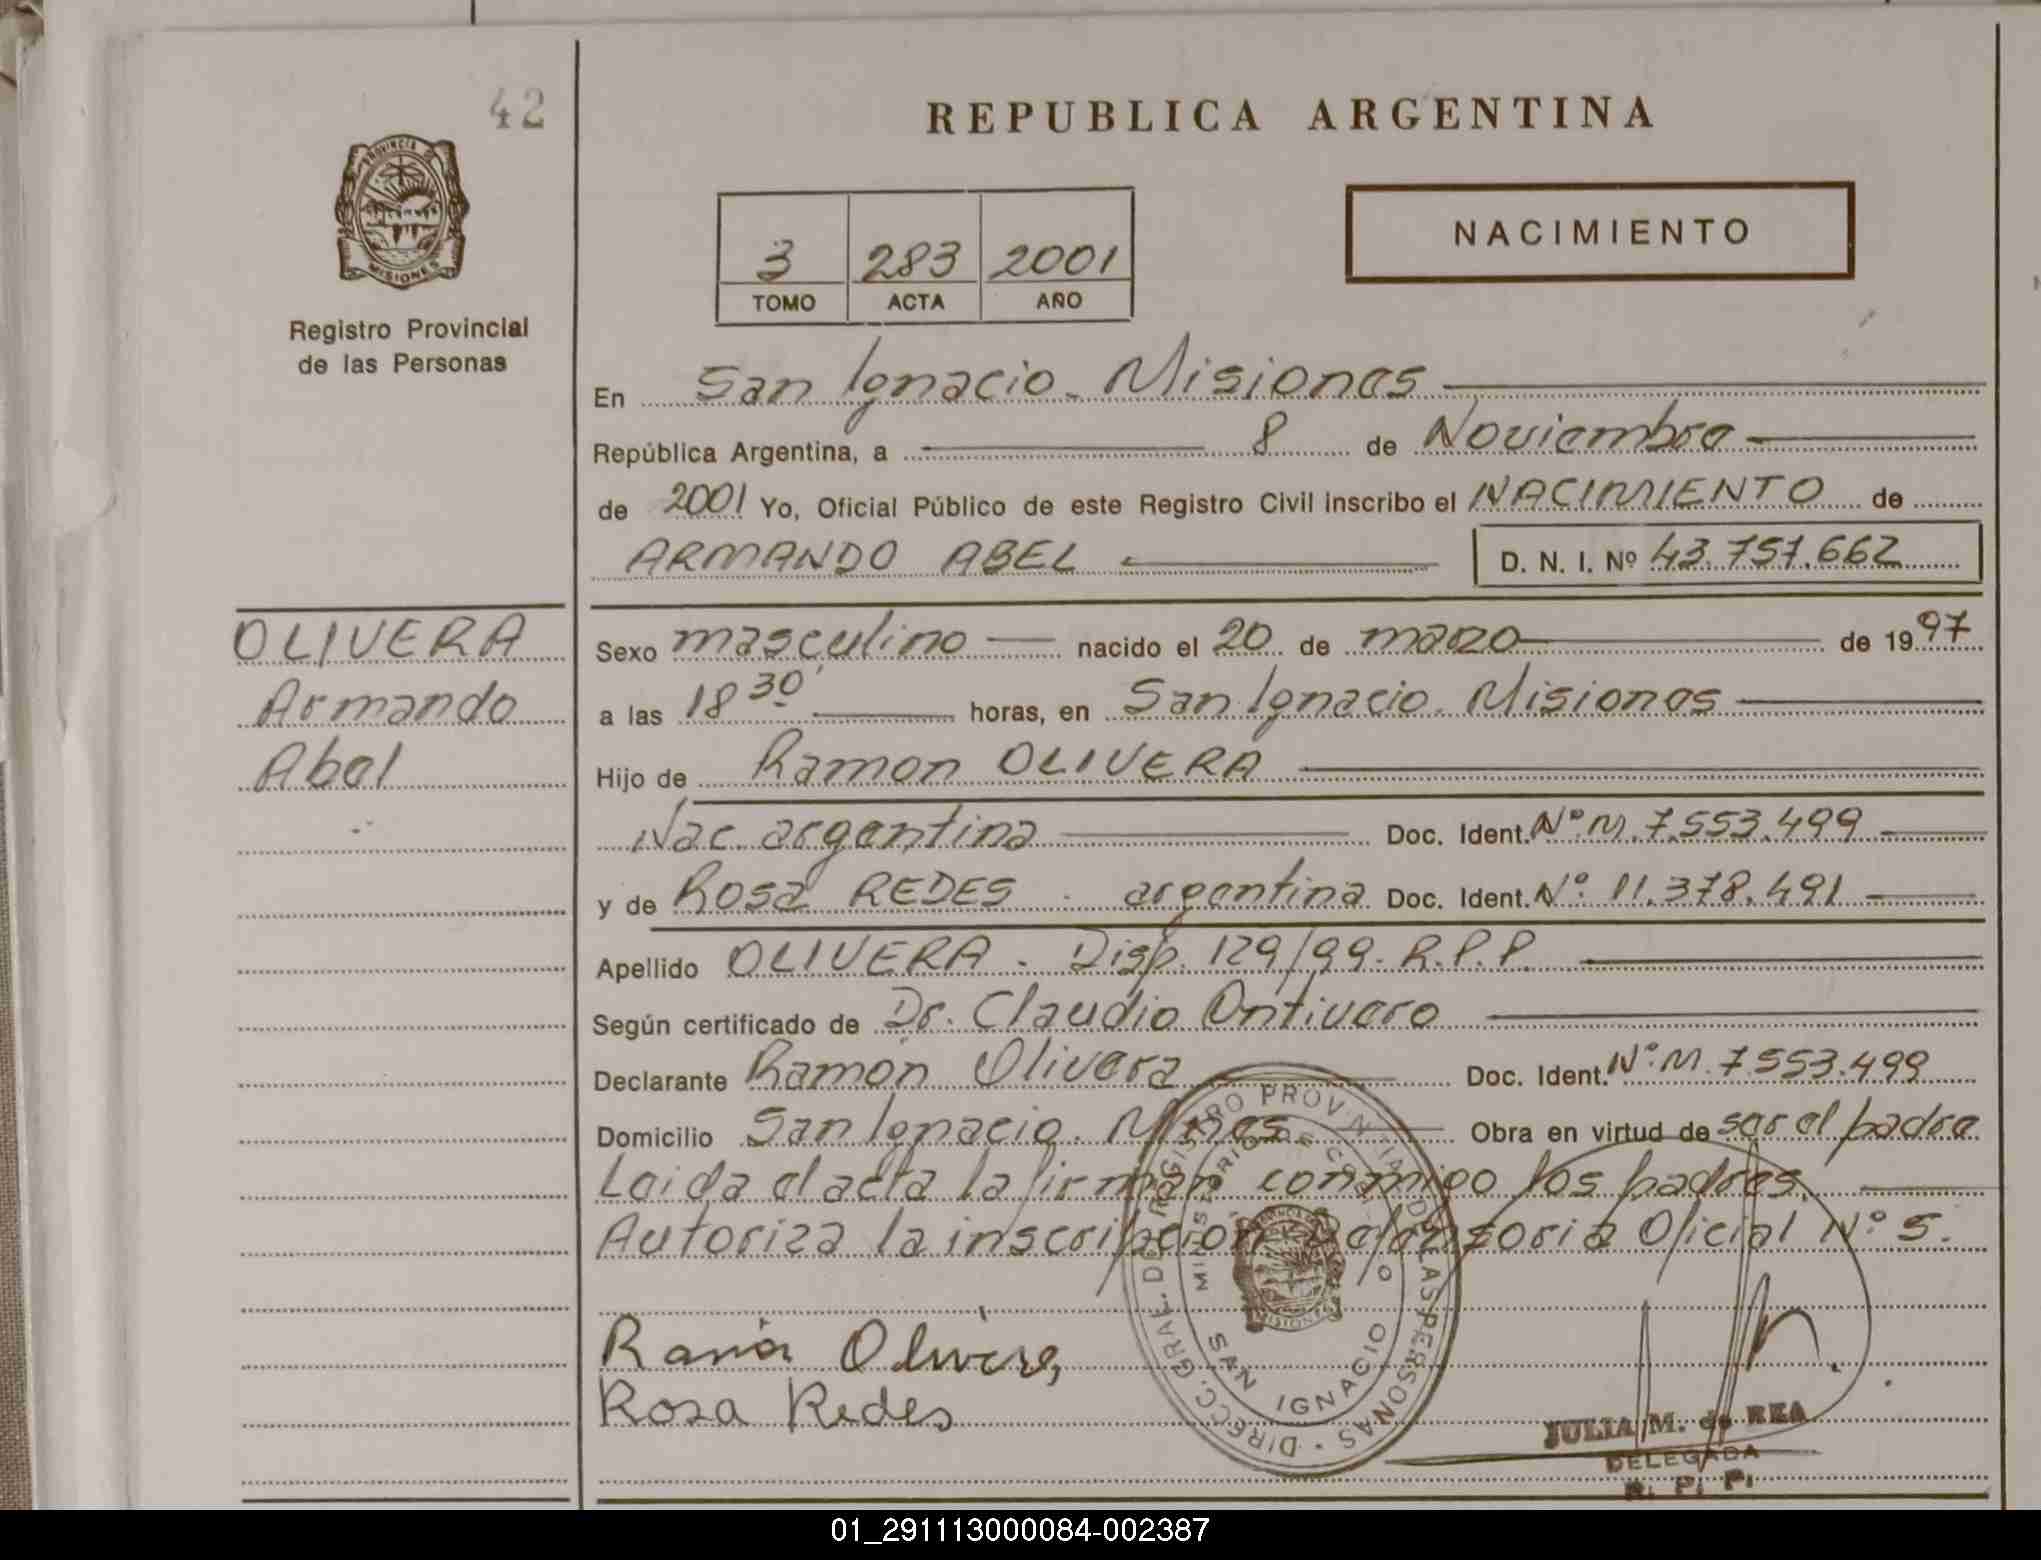 42
PROVINCIA DE
MISIONES
Registro Provincial
de las Personas
REPUBLICA ARGENTINA
3 283 2001
TOMO ACTA AÑO
NACIMIENTO
En San Ignacio. Misiones
República Argentina, a 8 de Noviembre
de 2001 Yo, Oficial Público de este Registro Civil inscribo el NACIMIENTO de
ARMANDO ABEL D. N. I. Nº 43.757.662
OLIVERA
Armando
Abel
Sexo masculino nacido el 20 de marzo de 1997
a las 18 30' horas, en San Ignacio. Misiones
Hijo de Ramon OLIVERA
Nac. argentina Doc. Ident. Nº. M. 7.553.499
y de Rosa REDES - argentina Doc. Ident. Nº. 11.378.491
Apellido OLIVERA. Disp. 129/99. R.P.P.
Según certificado de Dr. Claudio Ontivero
Declarante Ramón Olivera Doc. Ident. Nº. M. 7.553.499
Domicilio San Ignacio. Mnes Obra en virtud de ser el padre
Leida el acta la firman conmigo los padres.
Autoriza la inscripción Defensoria Oficial Nº 5.
Ramón Olivera
Rosa Redes
DIRECC. GRAL. DE REGISTRO PROVINCIAL DE LAS PERSONAS
MINISTERIO DE
SAN IGNACIO
MISIONES
JULIA M. de REA
DELEGADA
R. P. P.
01_291113000084-002387